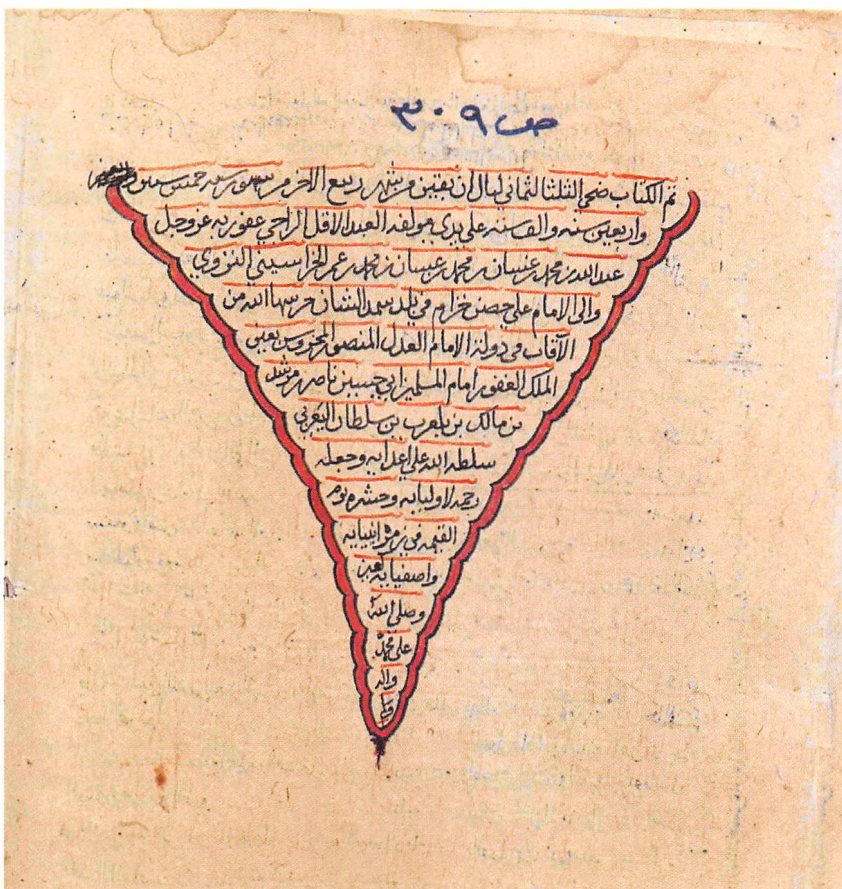 ص ٣٠٩
تم الكتاب ضحى الثلثا لثماني ليال ان بقين من شهر ربيع الاخر من شهور سنه خمس سنين
واربعين سنه والف سنه على يدي مولفه العبد الاقل الراجي عفو ربه عز وجل
عبدالله بن محمد بن غسان بن محمد بن غسان بن محمد بن عمر الخراسيني النزوي
والى الامام على حصن خزام في بلد سمد الشان حرسها الله من
الآفاب في دولة الامام العدل المنصور المحروس بعين
الملك الغفور امام المسلمين ابي حسين ناصر بن مرشد
بن مالك بن بلعرب بن سلطان اليعربي
سلطه الله على اعدايه وجعله
رحمه لاوليايه وحشره يوم
القيمه في زمرة انبيايه
واصفيايه
وصلى الله
على محمد
واله